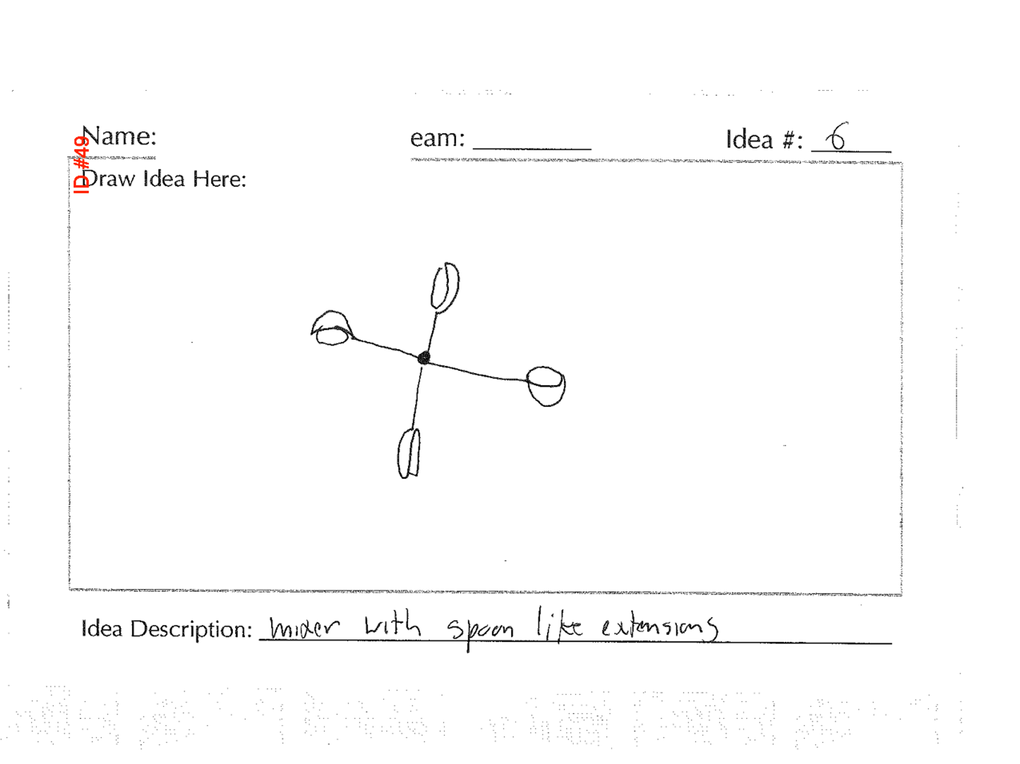 Name: eam: Idea #: 6
ID #49
Draw Idea Here:
Idea Description: mixer with spoon like extensions